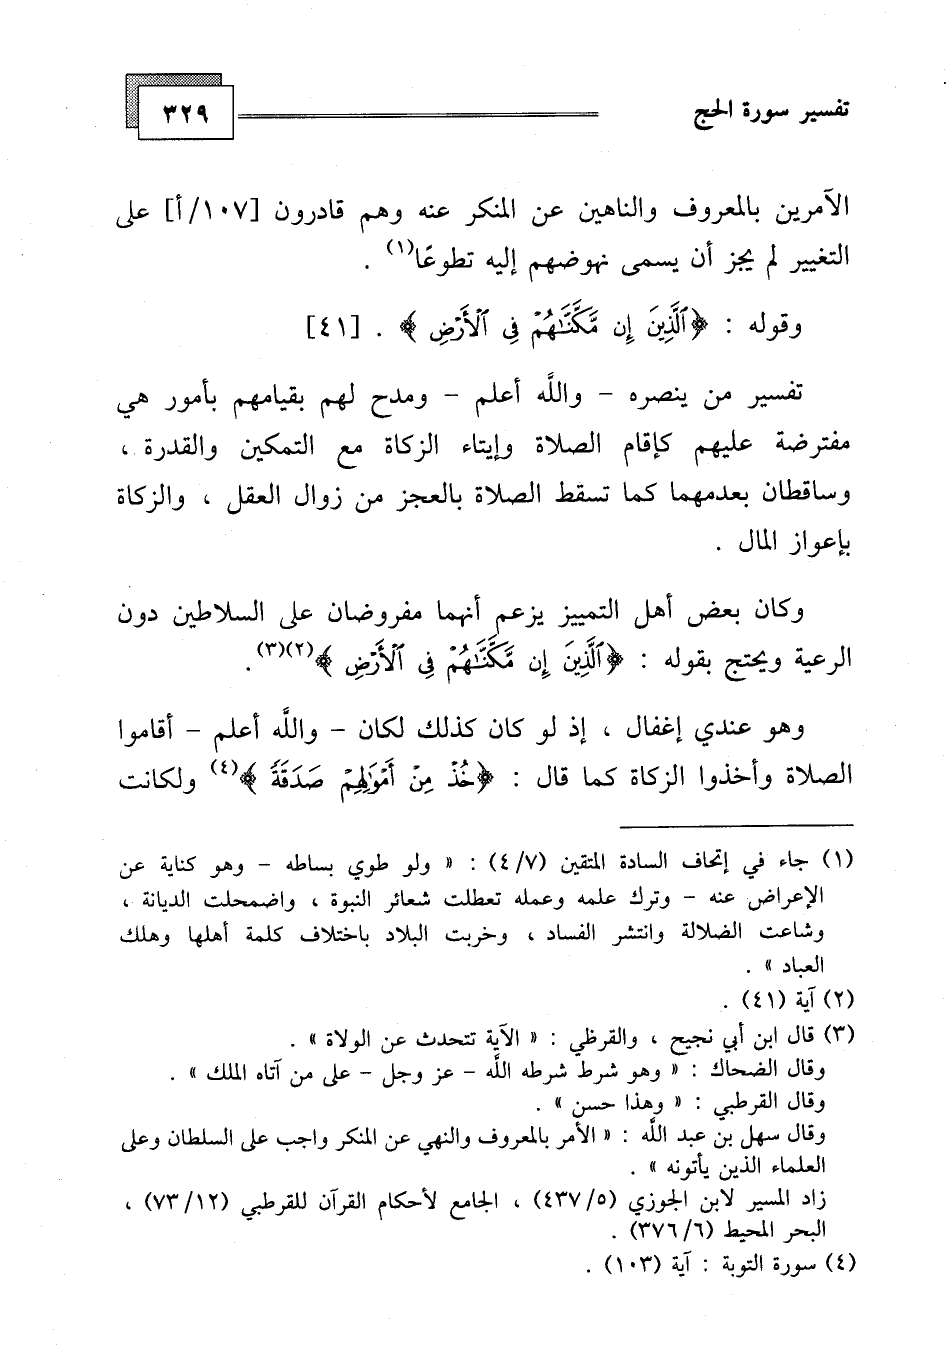 تفسير سورة الحج
٣٢٩
الآمرين بالمعروف والناهين عن المنكر عنه وهم قادرون [١٠٧/أ] على
التغيير لم يجز أن يسمى نهوضهم إليه تطوعًا(١) .
وقوله : ﴿ٱلَّذِينَ إِن مَّكَّنَّٰهُمْ فِي ٱلْأَرْضِ ﴾ . [٤١]
تفسير من ينصره – واللَّه أعلم – ومدح لهم بقيامهم بأمور هي
مفترضة عليهم كإقام الصلاة وإيتاء الزكاة مع التمكين والقدرة ،
وساقطان بعدمهما كما تسقط الصلاة بالعجز من زوال العقل ، والزكاة
بإعواز المال .
وكان بعض أهل التمييز يزعم أنهما مفروضان على السلاطين دون
الرعية ويحتج بقوله : ﴿ٱلَّذِينَ إِن مَّكَّنَّٰهُمْ فِي ٱلْأَرْضِ ﴾(٢)(٣).
وهو عندي إغفال ، إذ لو كان كذلك لكان – واللَّه أعلم – أقاموا
الصلاة وأخذوا الزكاة كما قال : ﴿خُذْ مِنْ أَمْوَٰلِهِمْ صَدَقَةً ﴾(٤) ولكانت
(١) جاء في إتحاف السادة المتقين (٤/٧) : « ولو طوي بساطه – وهو كناية عن
الإعراض عنه – وترك علمه وعمله تعطلت شعائر النبوة ، واضمحلت الديانة ،
وشاعت الضلالة وانتشر الفساد ، وخربت البلاد باختلاف كلمة أهلها وهلك
العباد » .
(٢) آية (٤١) .
(٣) قال ابن أبي نجيح ، والقرظي : « الآية تتحدث عن الولاة » .
وقال الضحاك : « وهو شرط شرطه اللَّه – عز وجل – على من آتاه الملك » .
وقال القرطبي : « وهذا حسن » .
وقال سهل بن عبد اللَّه : « الأمر بالمعروف والنهي عن المنكر واجب على السلطان وعلى
العلماء الذين يأتونه » .
زاد المسير لابن الجوزي (٤٣٧/٥) ، الجامع لأحكام القرآن للقرطبي (٧٣/١٢) ،
البحر المحيط (٣٧٦/٦) .
(٤) سورة التوبة : آية (١٠٣) .